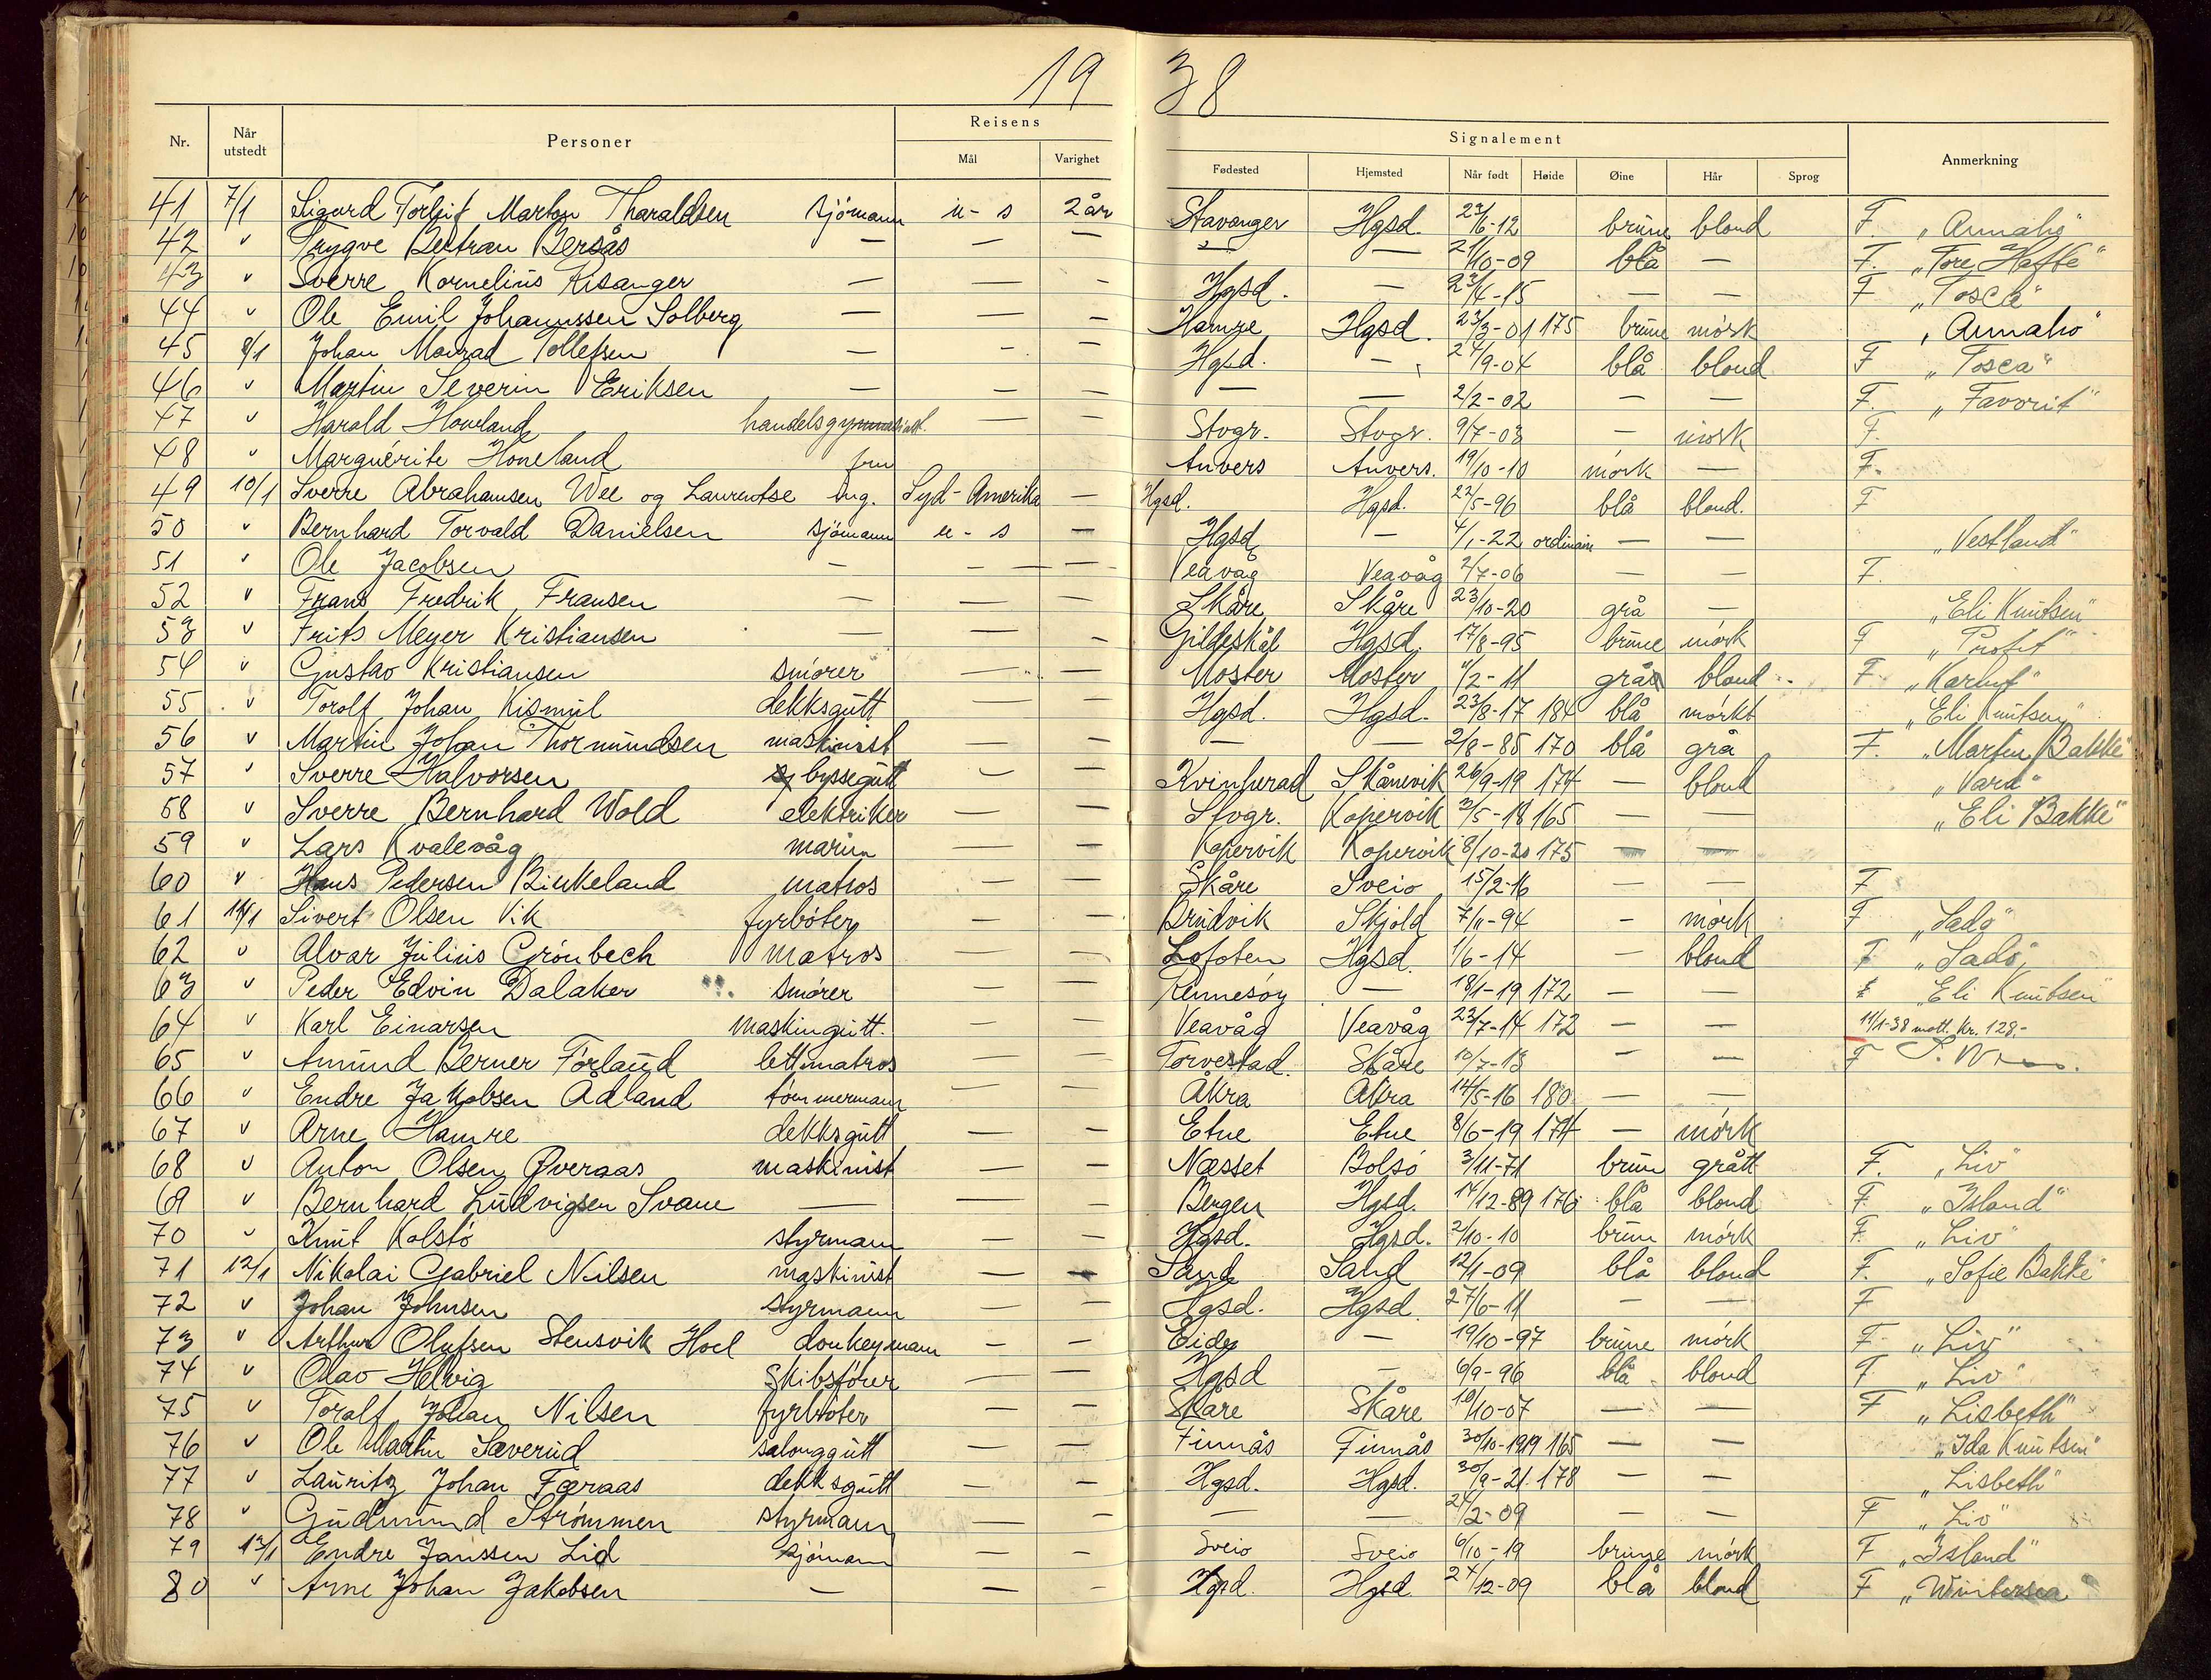 19 38
Nr. Når utstedt Personer Reisens Mål Varighet Signalement Fødested Hjemsted Når født Høide Øine Hår Sprog Anmerkning
41 7/1 Sigurd Torleif Marton Tharaldsen sjömann u - s 2 år Stavanger Hgsd. 23/6-12 brune blond F. „Annahø"
42 " Trygve Bertran Bersås — — — — — 21/10-09 blå — F. „Tore Hafte"
43 " Sverre Kornelius Risanger — — — Hgsd. — 23/4-15 — — F „Tosca"
44 " Ole Emil Johannssen Solberg — — — Hamre Hgsd. 23/3-01 175 brune mörk „Annahø"
45 8/1 Johan Monrad Tollefsen — — — Hgsd. — 24/9-04 blå blond F „Tosca"
46 " Martin Severin Eriksen — — — — — 2/2-02 — — F. „Favorit"
47 " Harald Honeland handelsgymnasiast — — Stvgr. Stvgr. 9/7-03 — mörk F.
48 " Marguérite Honeland fru — — Anvers Anvers. 19/10-10 mörk — F.
49 10/1 Sverre Abrahamsen Wee og Laurentse ing. Syd-Amerika — Hgsd. Hgsd. 22/5-96 blå blond. F
50 " Bernhard Torvald Danielsen sjömann u - s — Hgsd — 4/1-22 ordinær — — „Vestland"
51 " Ole Jacobsen — — — Veavåg Veavåg 2/7-06 — — F.
52 " Frans Fredrik Fransen — — — Skåre Skåre 23/10-20 grå — „Eli Knutsen"
53 " Frits Meyer Kristiansen — — — Gildeskål Hgsd. 17/8-95 brune mörk F „Profit"
54 " Gustav Kristiansen smörer — — Moster Moster 4/2-11 grå blond F. „Karhut"
55 " Torolf Johan Kismul dekksgutt — — Hgsd. Hgsd. 23/8-17 184 blå mörkt „Eli Knutsen"
56 " Martin Johan Thormundsen maskinist — — — — 2/8-85 170 blå grå F. „Martin Bakke"
57 " Sverre Halvorsen byssegutt — — Kvinherad Skånevik 26/9-19 174 — blond „Vard"
58 " Sverre Bernhard Wold elektriker — — Stvgr. Kopervik 3/5-18 165 — — „Eli Bakke"
59 " Lars Kvalevåg marin — — Kopervik Kopervik 8/10-20 175 — —
60 " Hans Pedersen Birkeland matros — — Skåre Sveio 15/2-16 — — F
61 11/1 Sivert Olsen Vik fyrböter — — Bruvik Skjold 7/11-94 — mörk F „Lado"
62 " Alvar Julius Grönbech matros — — Lofoten Hgsd. 1/6-14 — blond F „Lado"
63 " Peder Edvin Dalaker smörer — — Rennesöy — 18/1-19 172 — — F „Eli Knutsen"
64 " Karl Einarsen maskingutt — — Veavåg Veavåg 23/7-14 172 — — 11/1-38 mott. kr. 128.-
65 " Amund Berner Förland lettmatros — — Torvestad. Skåre 10/7-13 — — F
66 " Endre Jakobsen Ådland tömmermann — — Åkra Åkra 14/5-16 180 — —
67 " Arne Hamre dekksgutt — — Etne Etne 8/6-19 174 — mörk
68 " Anton Olsen Øveraas maskinist — — Nesset Bolsö 3/11-71 brun grått F. „Liv"
69 " Bernhard Ludvigsen Svane — — — Bergen Hgsd. 14/12-89 176 blå blond F. „Island"
70 " Knut Kolstö styrmann — — Hgsd. Hgsd. 2/10-10 brun mörk F. „Liv"
71 12/1 Nikolai Gabriel Nilsen maskinist — — Sand Sand 12/1-09 blå blond F. „Sofie Bakke"
72 " Johan Johnsen styrmann — — Hgsd. Hgsd. 27/6-11 — — F
73 " Arthur Olufsen Stensvik Hoel donkeymann — — Eide — 19/10-97 brune mörk F. „Liv"
74 " Olav Helvig Skibsförer — — Hgsd — 6/9-96 blå blond F. „Liv"
75 " Toralf Johan Nilsen fyrböter — — Skåre Skåre 10/10-07 — — F „Lisbeth"
76 " Ole Martin Sæverud salonggutt — — Finnås Finnås 30/10-1919 165 — — „Ida Knutsen"
77 " Lauritz Johan Færaas dekksgutt — — Hgsd. Hgsd. 30/9-21 178 — — „Lisbeth"
78 " Gudmund Strömmen styrmann — — — — 24/2-09 — — F „Liv"
79 13/1 Endre Janssen Lid sjömann — — Sveio Sveio 6/10-19 brune mörk F „Island"
80 " Arne Johan Jakobsen — — — Hgsd. Hgsd 24/12-09 blå blond F „Wintersea"